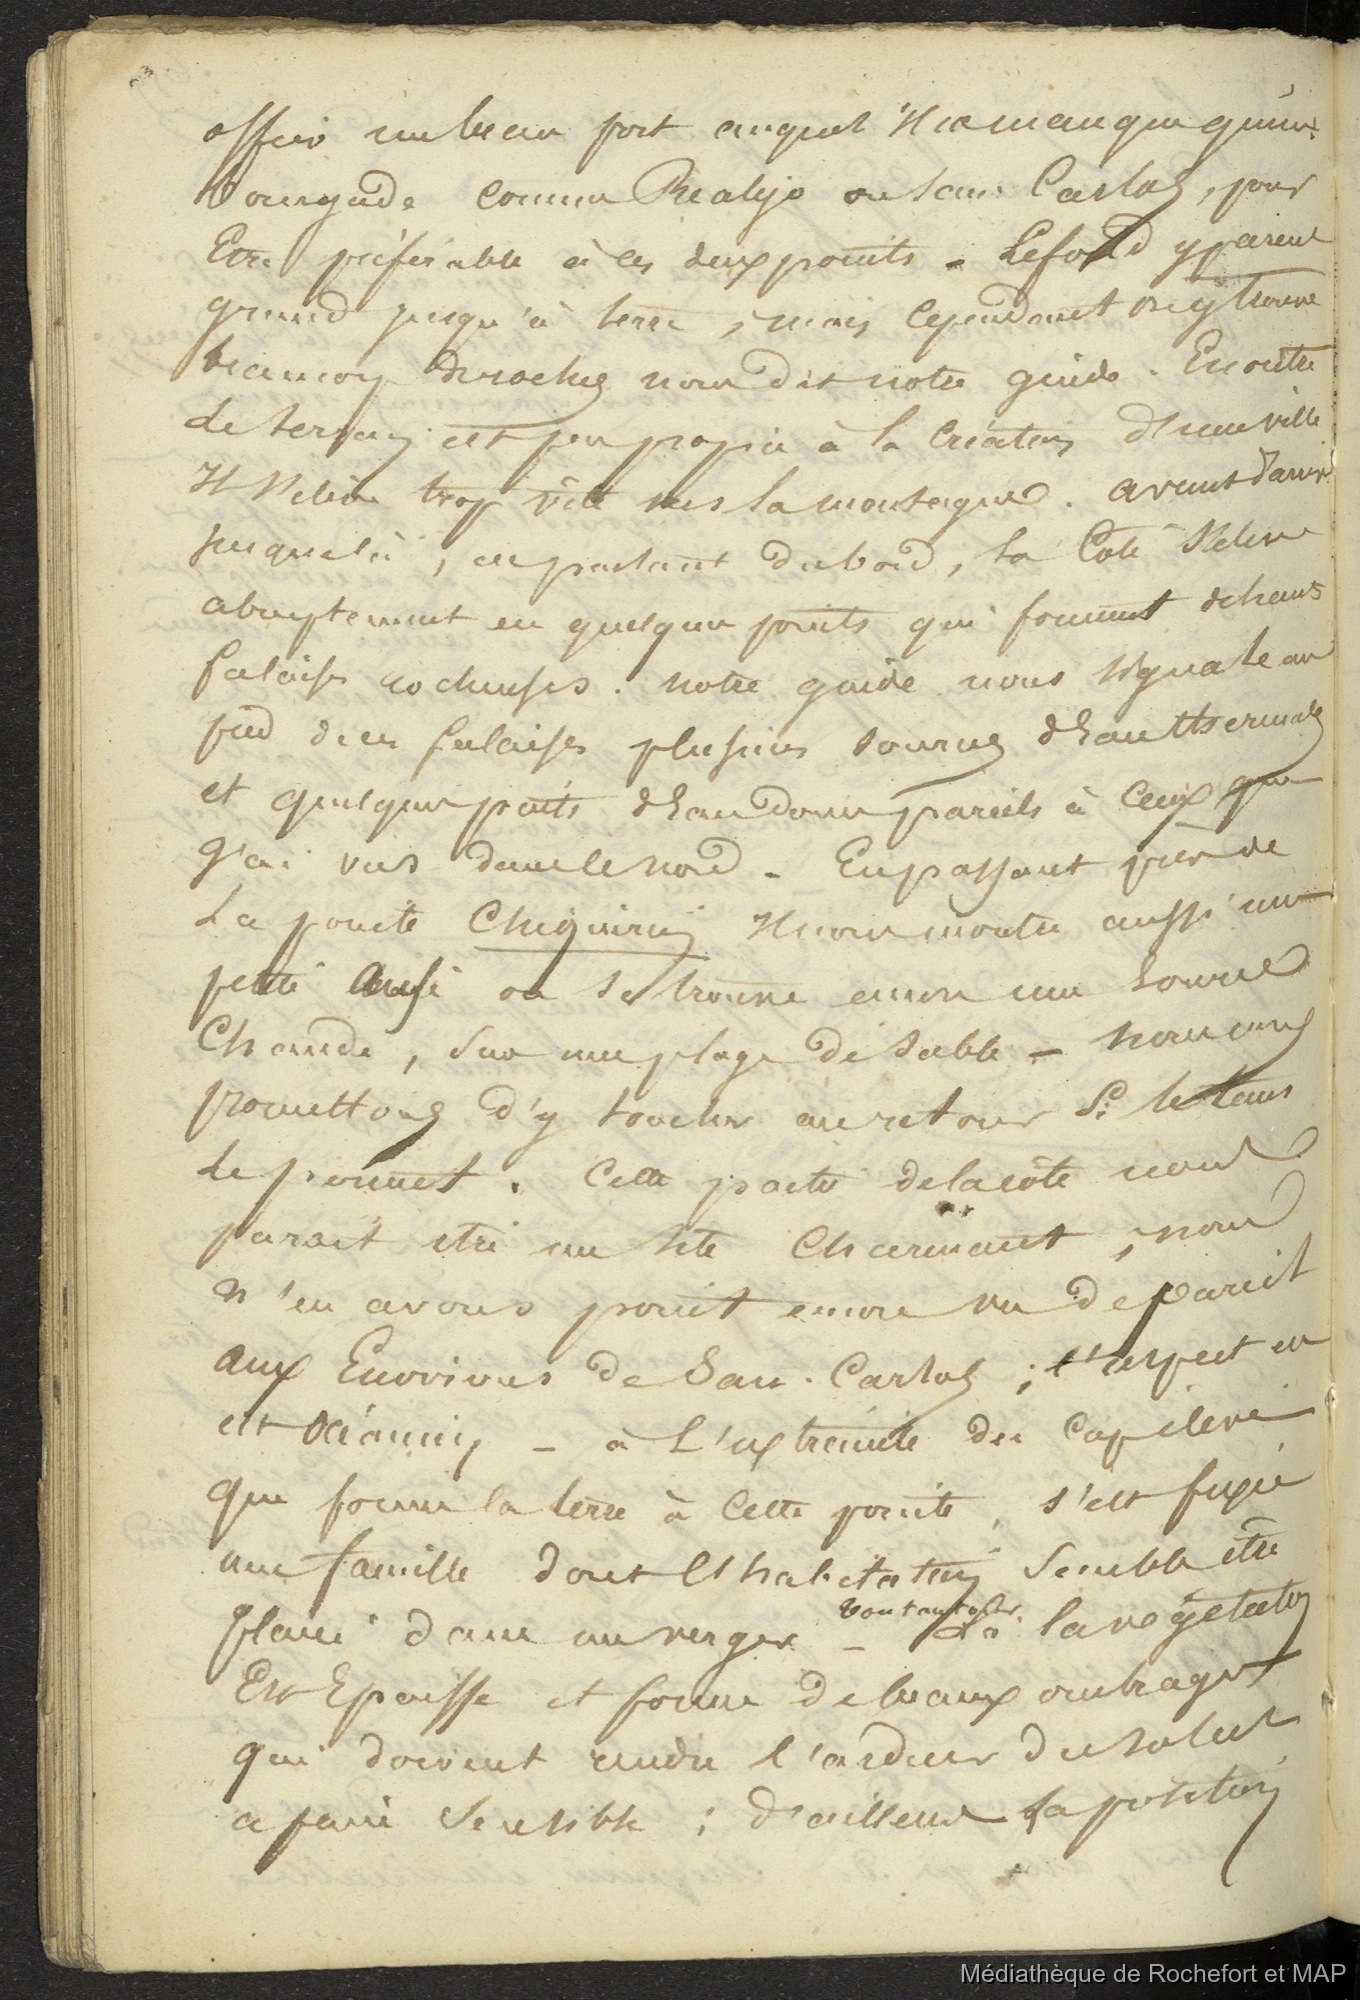 offrir un beau port auquel il ne manque qu'une
bourgade comme Realejo ou San Carlos, pour
Etre préférable à ces deux points - Le fond y parait
grand jusqu'à terre, mais cependant on y trouve
beaucoup de roches nous dit notre guide. En outre
le terrain est peu propice à la création d'une ville
Il s'élève trop vite vers la montagne. avant d'arriver
jusque là, en partant du bord, la Cote s'élève
abruptement en quelques points qui forment de hautes
falaises rocheuses. notre guide nous signale au
pied de ces falaises plusieurs sources d'eau thermales
et quelques puits d'eau douce pareils à ceux que
j'ai vus dans le nord - En passant près de
La pointe Chiquirin il nous montre aussi une
petite anse où se trouve encore une source
Chaude, sur une plage de sable - nous nous
promettons d'y toucher au retour Si le tems
le permet. Cette partie de la côte nous
parait etre un site charmant, nous
n'en avons point encore vu de pareil
aux Environs de San-Carlos; l'aspect en
est océanien - à l'extrémité du Cap élevé
que forme la terre à cette pointe, s'est fixée
une famille dont l'habitation semble être
placée dans un verger - tout autour la végétation
Est Epaisse et forme de beaux ombrages
qui doivent rendre l'ardeur du soleil
a peine sensible; d'ailleurs la position
Médiathèque de Rochefort et MAP